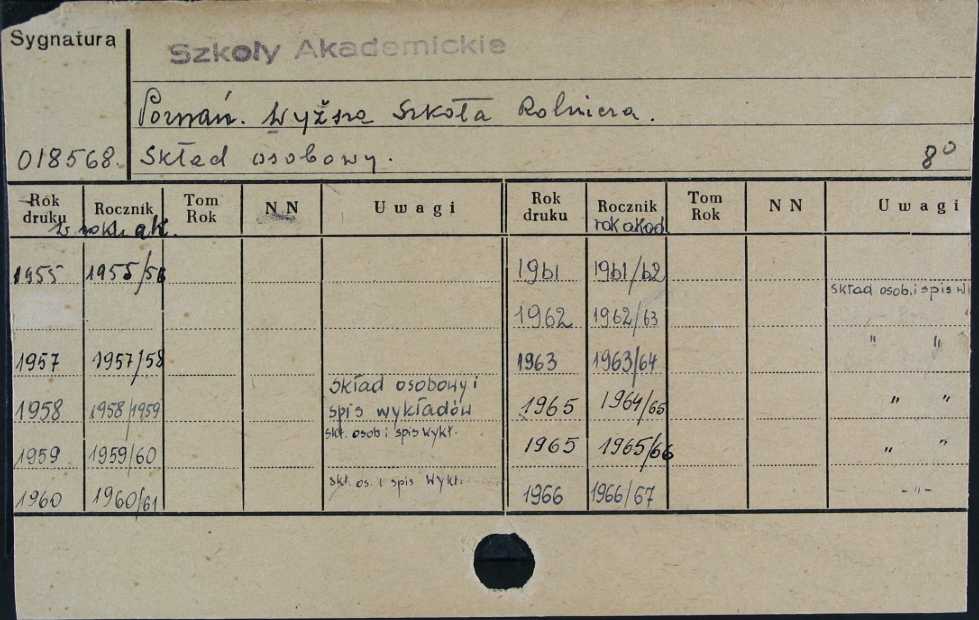 Sygnatura
Szkoły Akademickie
Poznań. Wyższa Szkoła Rolnicza.
018568. Skład osobowy. 8°
Rok druku Rocznik Tom Rok N N Uwagi Rok druku Rocznik Tom Rok N N Uwagi
w roku ak. rok akad
1955 1955/56 1961 1961/62
skład osob. i spis w
1962 1962/63
1957 1957/58 1963 1963/64 " "
skład osobowy i
1958 1958/1959 spis wykładów 1965 1964/65 " "
skł. osob i spis wykł.
1959 1959/60 1965 1965/66 " "
skł. os. i spis wykł.
1960 1960/61 1966 1966/67 -"-